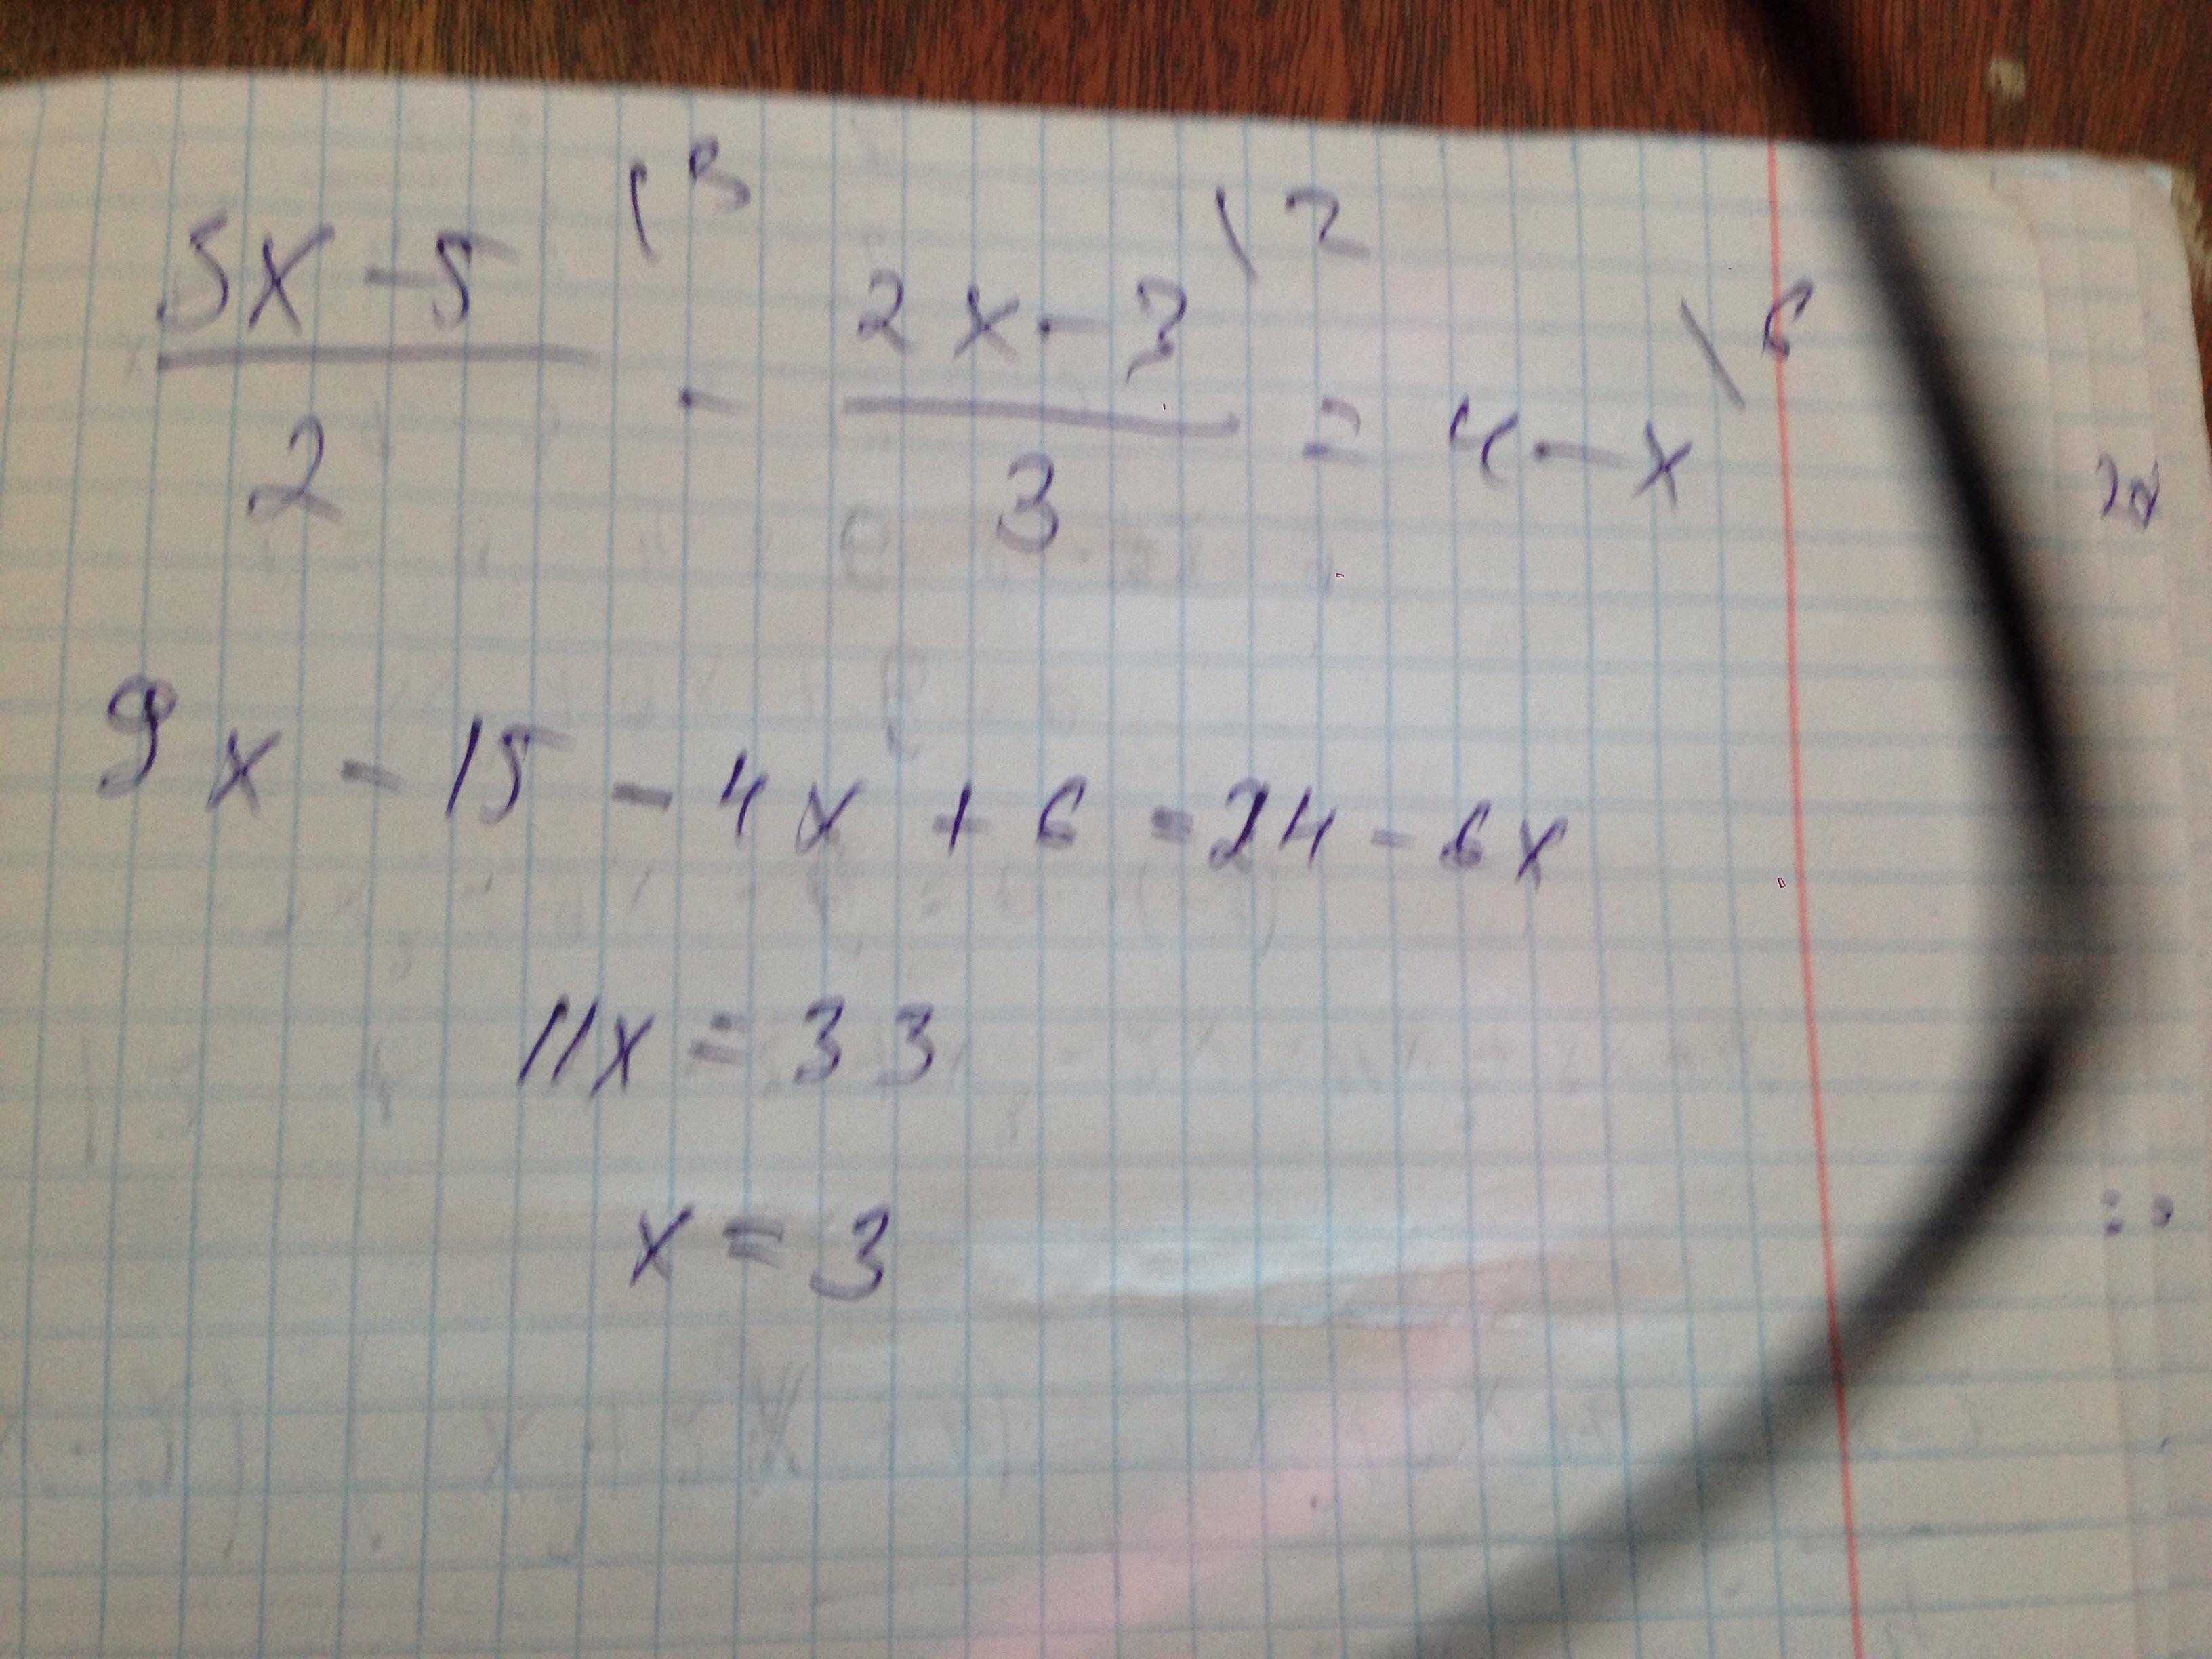 (3x - 5)/2 \3 - (2x - 3)/3 \2 = 4 - x \6
9x - 15 - 4x + 6 = 24 - 6x
11x = 33
x = 3